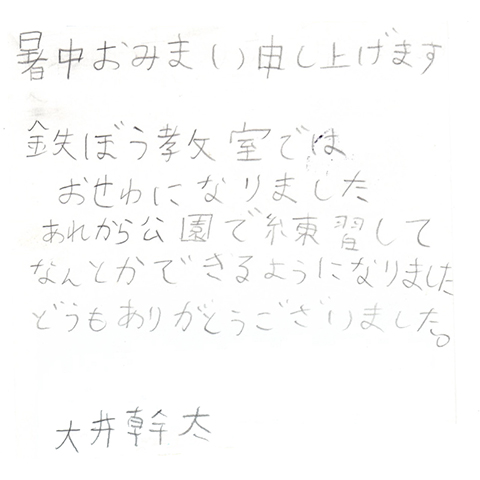 暑中おみまい申し上げます
鉄ぼう教室では
おせわになりました
あれから公園で練習して
なんとかできるようになりました
どうもありがとうございました。
大井幹太